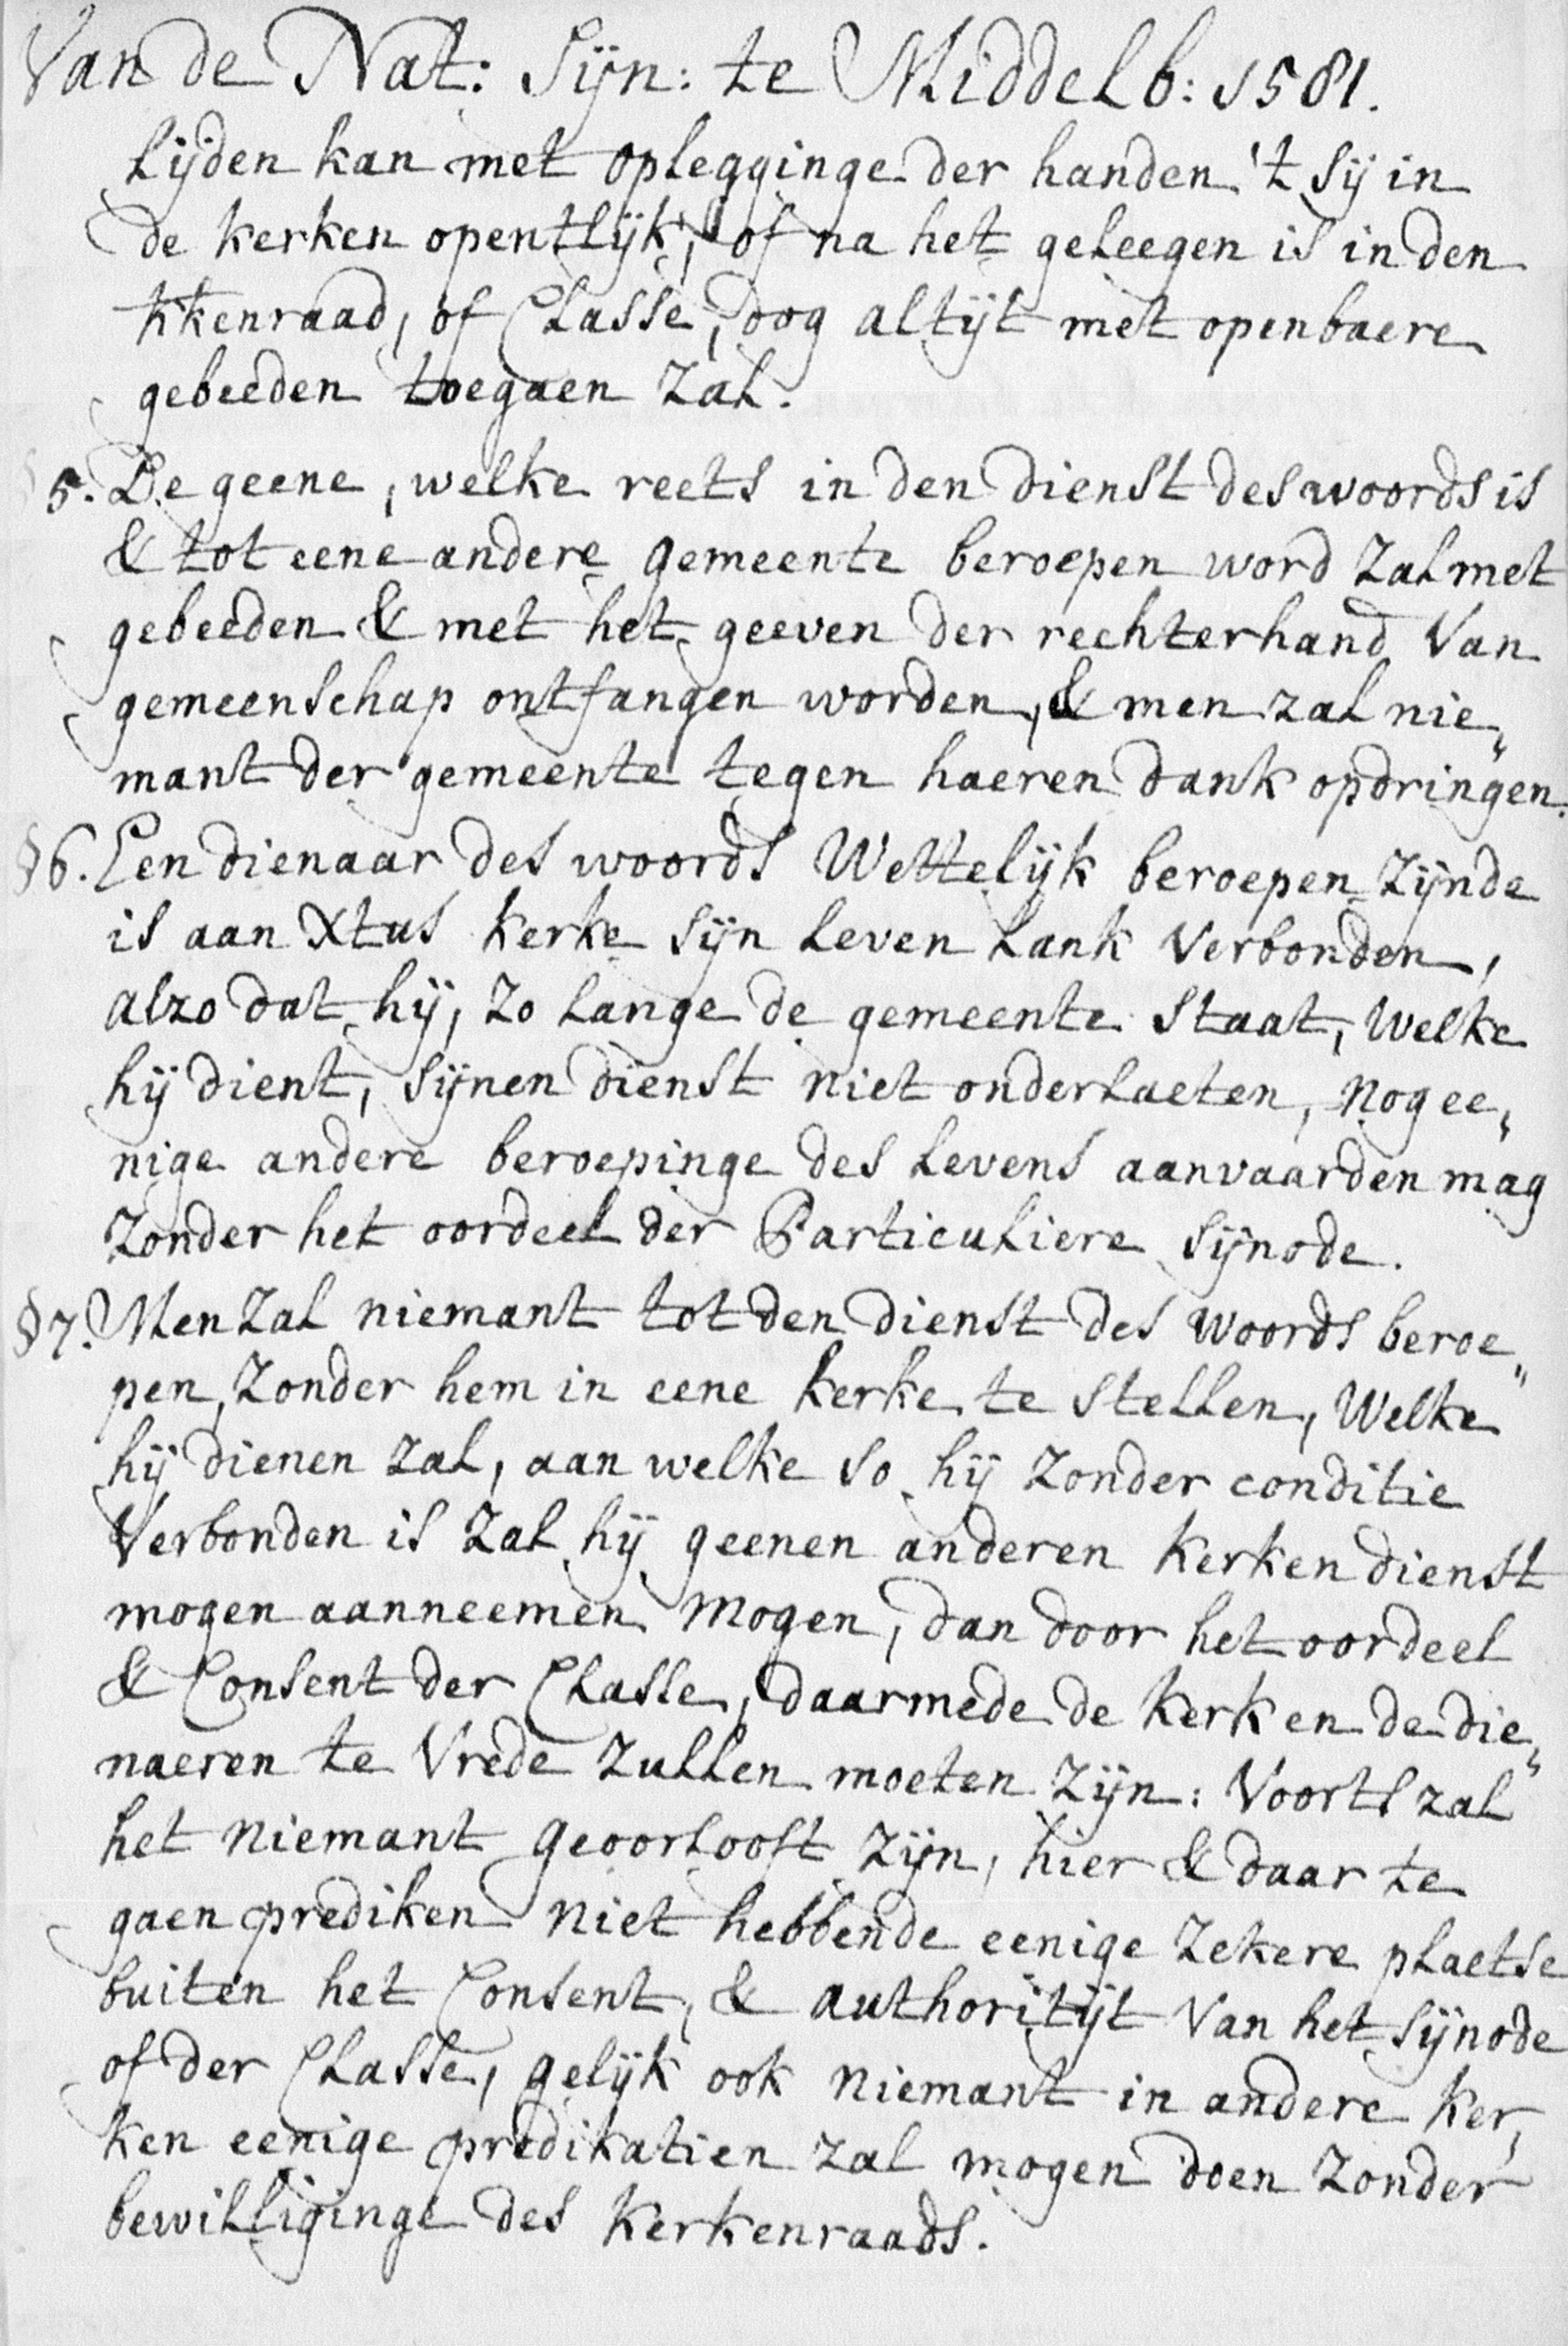 Van de Nat: Sijn: te Middelb: 1581.
Lijden kan met oplegginge der handen 't sij in
de kerken opentlijk, of na het geleegen is in den
kkenraad, of Classe, dog altijt met openbaere
gebeeden toegaen zal.
5. De geene, welke reets in den dienst des woords is
& tot eene andere gemeente beroepen word zal met
gebeeden & met het geeven der rechterhand van
gemeenschap ontfangen worden, & men zal nie„
mant der gemeente tegen haeren dank opdringen.
§6. Een dienaar des woords Wettelijk beroepen zijnde
is aan Xtus kerke sijn leven lank verbonden,
alzo dat hij, zo lange de gemeente staat, welke
hij dient, sijnen dienst niet onderlaeten, nog ee„
nige andere beroepinge des levens aanvaarden mag
zonder het oordeel der Particuliere sijnode.
§7. Men zal niemant tot den dienst des woords beroe„
pen, zonder hem in eene kerke te stellen, welke
hij dienen zal, aan welke so hij zonder conditie
verbonden is zal hij geenen anderen kerken dienst
mogen aanneemen mogen, dan door het oordeel
& Consent der Classe, daarmede de kerk en de die„
naeren te vrede zullen moeten zijn: Voorts zal
het niemant geoorlooft zijn, hier & daar te
gaen prediken niet hebbende eenige zekere plaetse
buiten het Consent, & authoritijt van het sijnode
of der Classe, gelijk ook niemant in andere ker,
ken eenige predikatien zal mogen doen zonder
bewilliginge des kerkenraads.